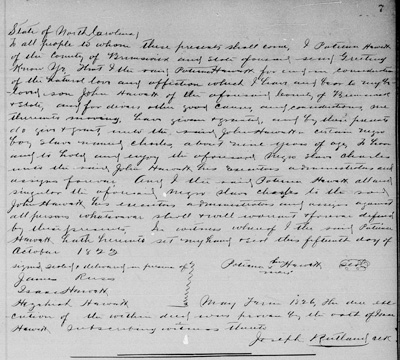 7
State of North Carolina,
To all people to whom these presents shall come, I Patience Hewett
of the County of Brunswick and State aforesaid send Greeting
Know Ye That I the said Patience Hewett for and in consideration
of the natural love and affection which I have and bear to my be
loved son John Hewett of the aforesaid County of Brunswick
& State, and for divers other good causes and considerations me
thereunto moving, have given & granted, and by these presents
do give & grant unto the said John Hewett a certain negro
boy slave named Charles, about nine years of age, To have
and to hold and enjoy the aforesaid Negro Slave Charles
unto the said John Hewett, his executors administrators and
assigns forever. And I the said Patience Hewett all and
singular the aforesaid Negro slave Charles to the said
John Hewett, his executors administrators and assigns against
all persons whatsoever shall & will warrant & forever defend
by these presents In witness whereof I the said Patience
Hewett hath hereunto set my hand & seal this fifteenth day of
October 1823
signed, sealed & delivered in presence of
James Russ
Isaac Hewett
Hezekiah Hewett
Patience Hewett
May Term 1826, The due exe
cution of the within deed was proven by the oath of Isaac
Hewett subscribing witness thereto
Joseph Rutland clk